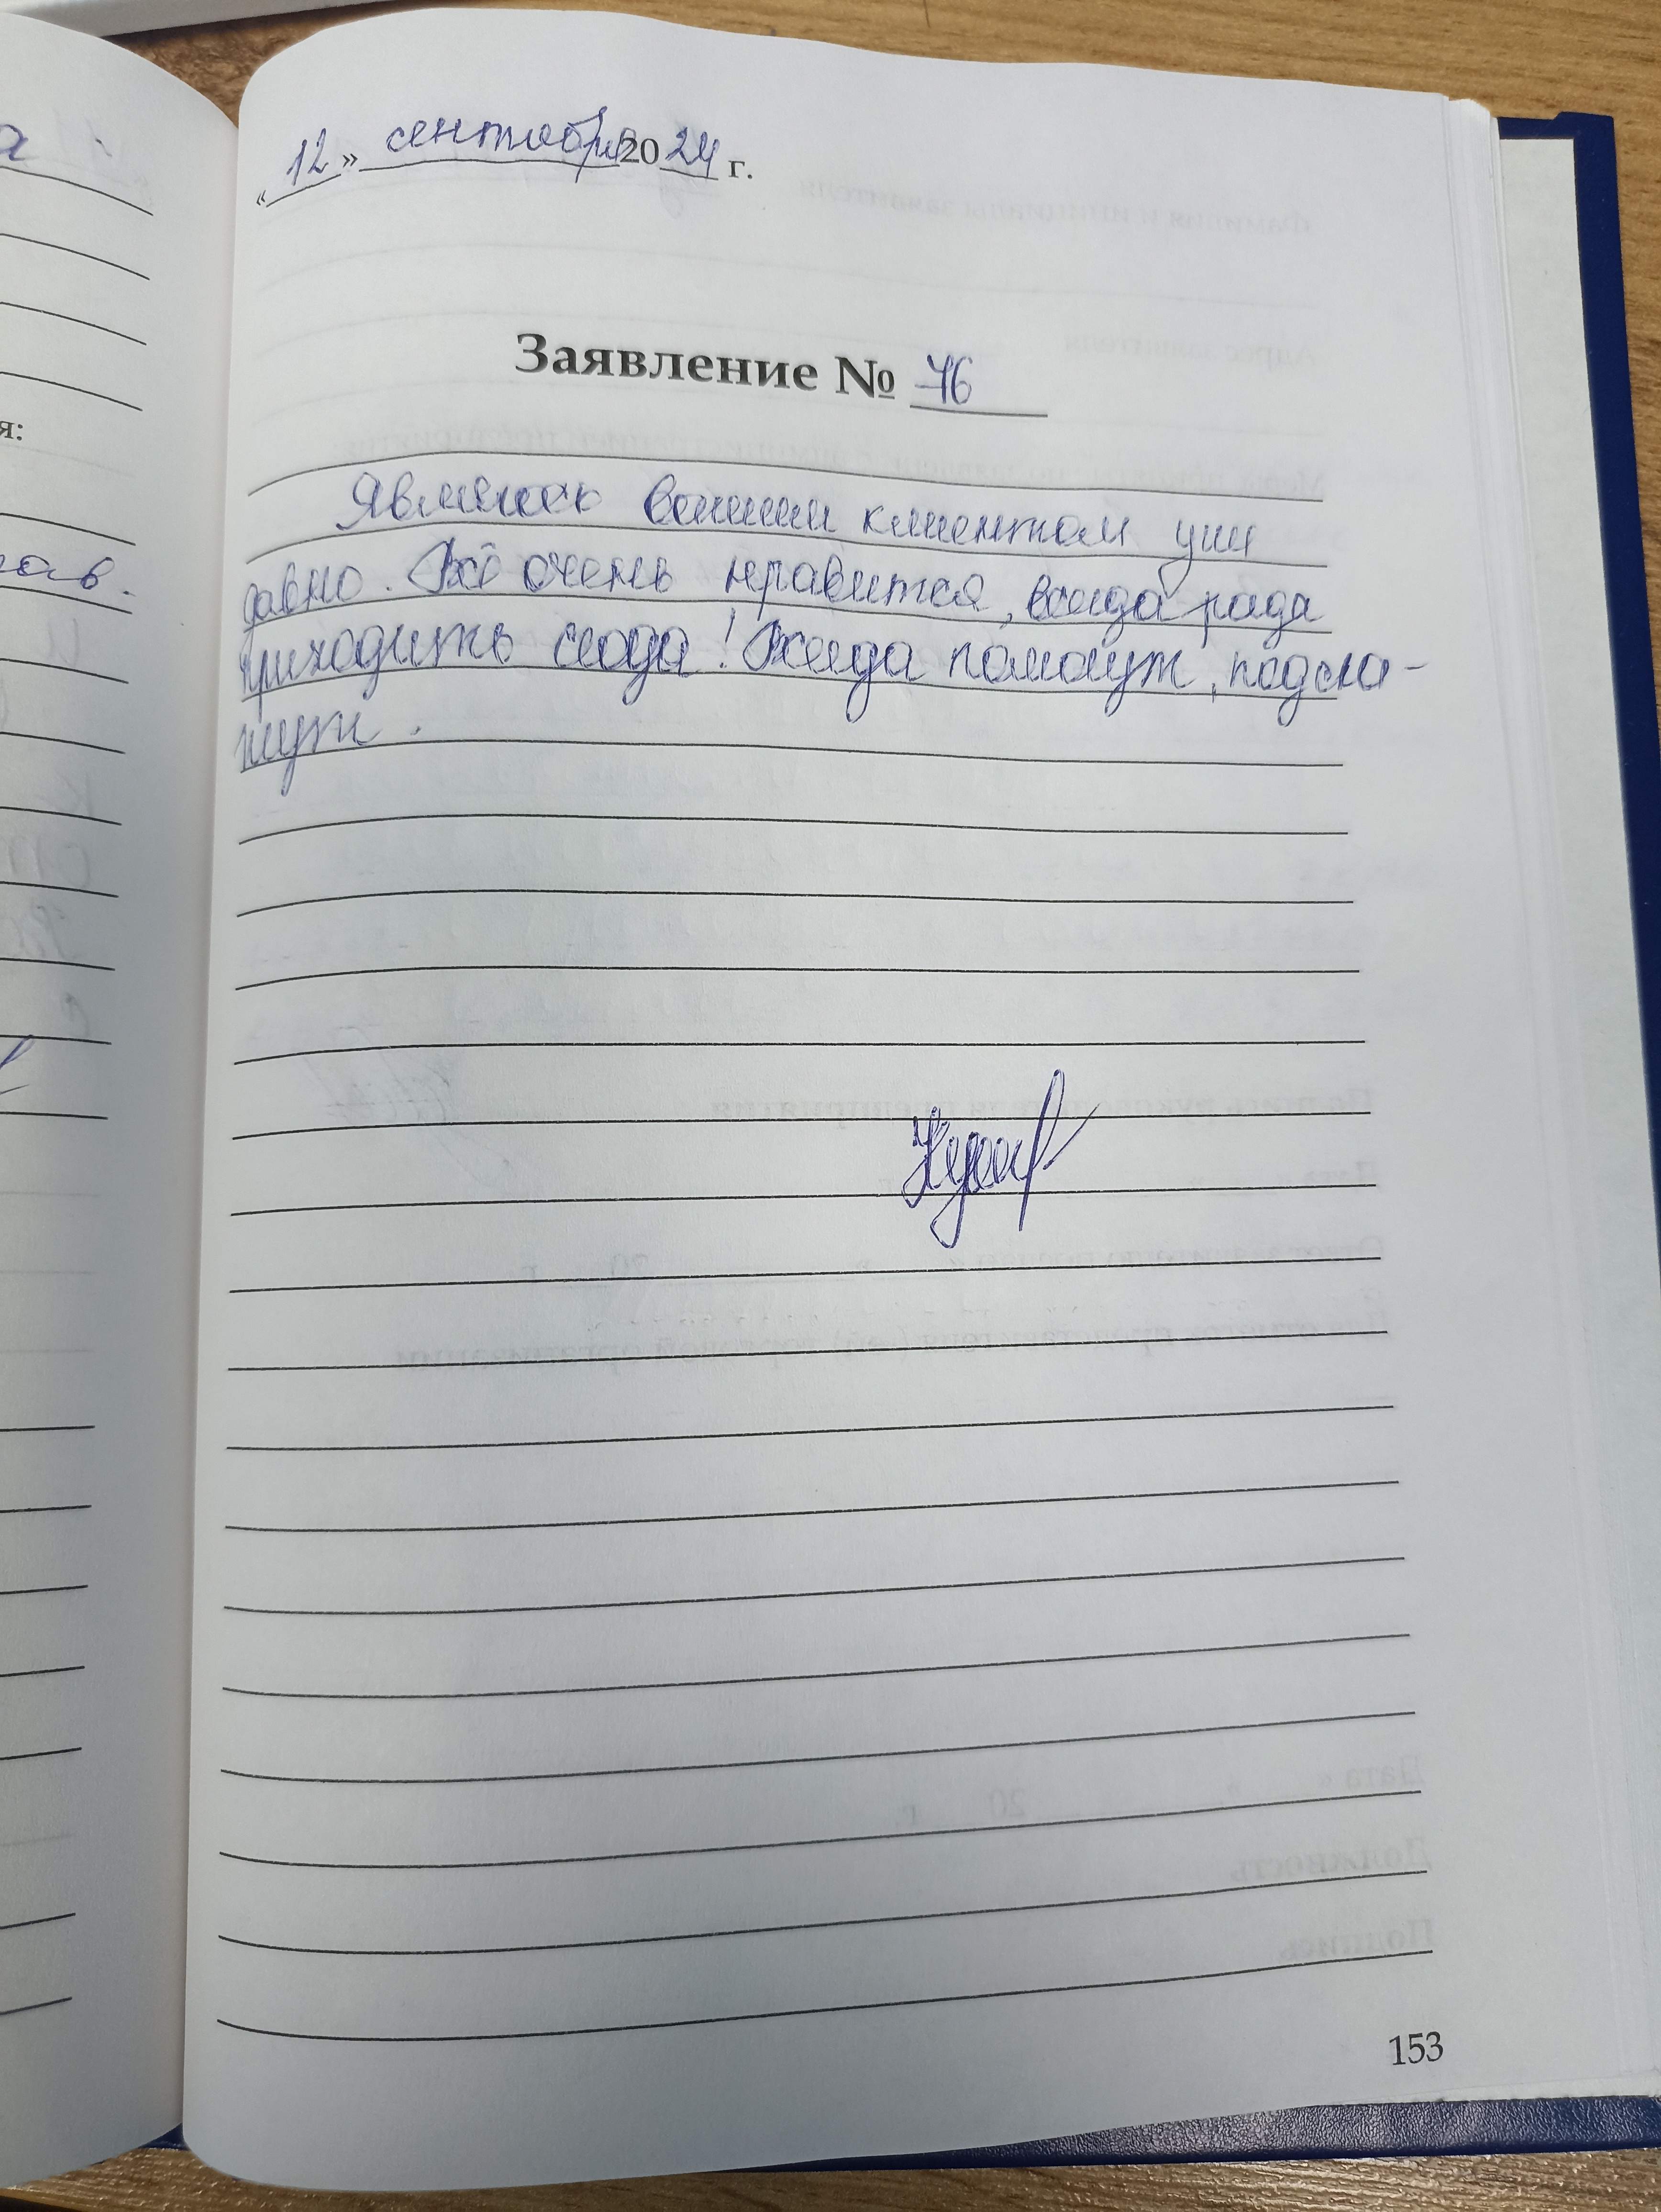 «12» сентября 2024 г.
Заявление № 76
Являюсь вашим клиентом уже
давно. Всё очень нравится, всегда рада
приходить сюда! Всегда помогут, подска-
жут.
153